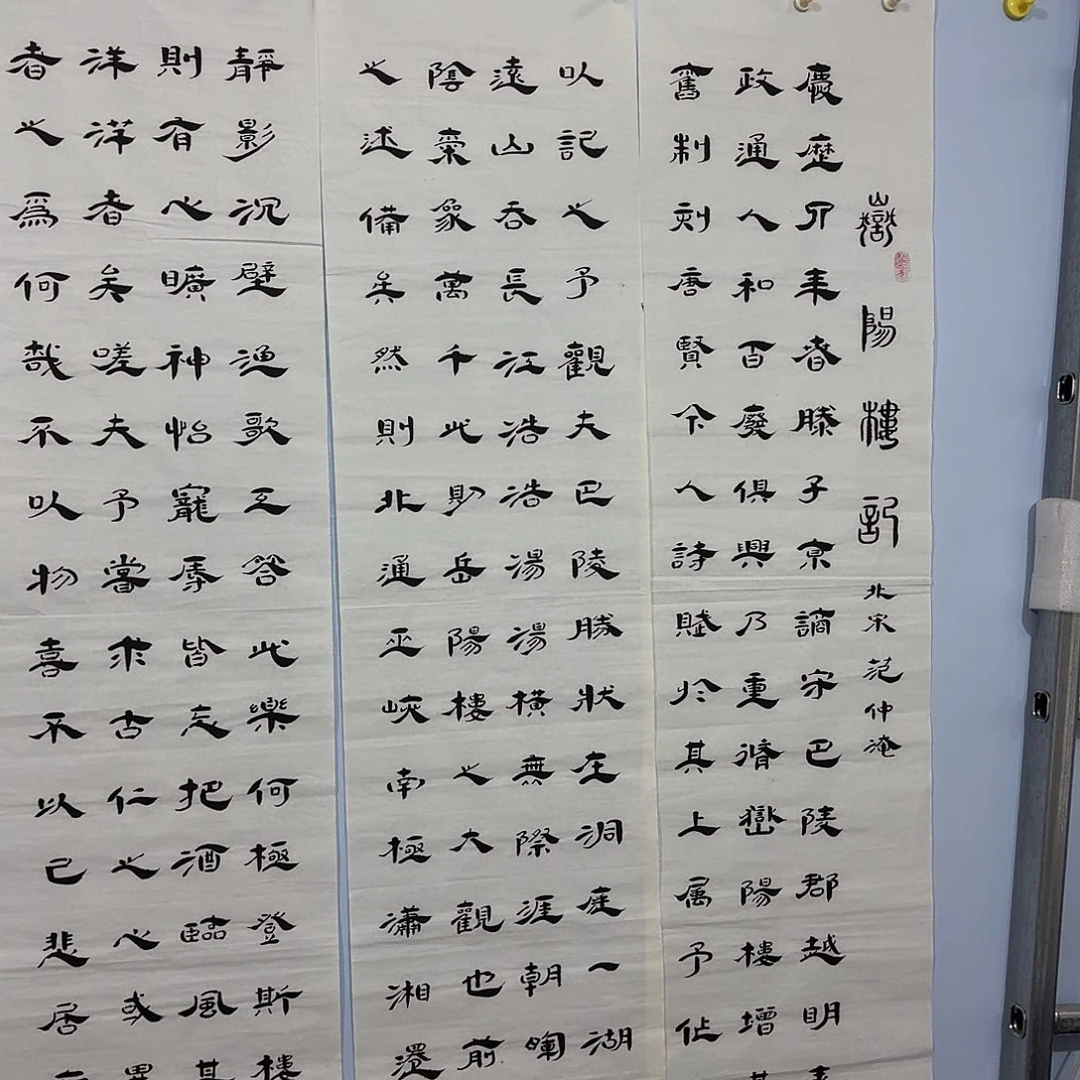 嶽陽樓記 北宋 范仲淹
慶歷四年春滕子京謫守巴陵郡越明年
政通人和百廢俱興乃重脩嶽陽樓增其
舊制刻唐賢今人詩賦於其上属予作
以記之予觀夫巴陵勝狀在洞庭一湖
遠山吞長江浩浩湯湯橫無際涯朝暉
陰氣象萬千此則岳陽樓之大觀也前
之述備矣然則北通巫峽南極瀟湘遷
靜影沉璧漁歌互答此樂何極登斯樓
則有心曠神怡寵辱皆忘把酒臨風其
洋洋者矣嗟夫予嘗求古仁之心或異
者之爲何哉不以物喜不以己悲居